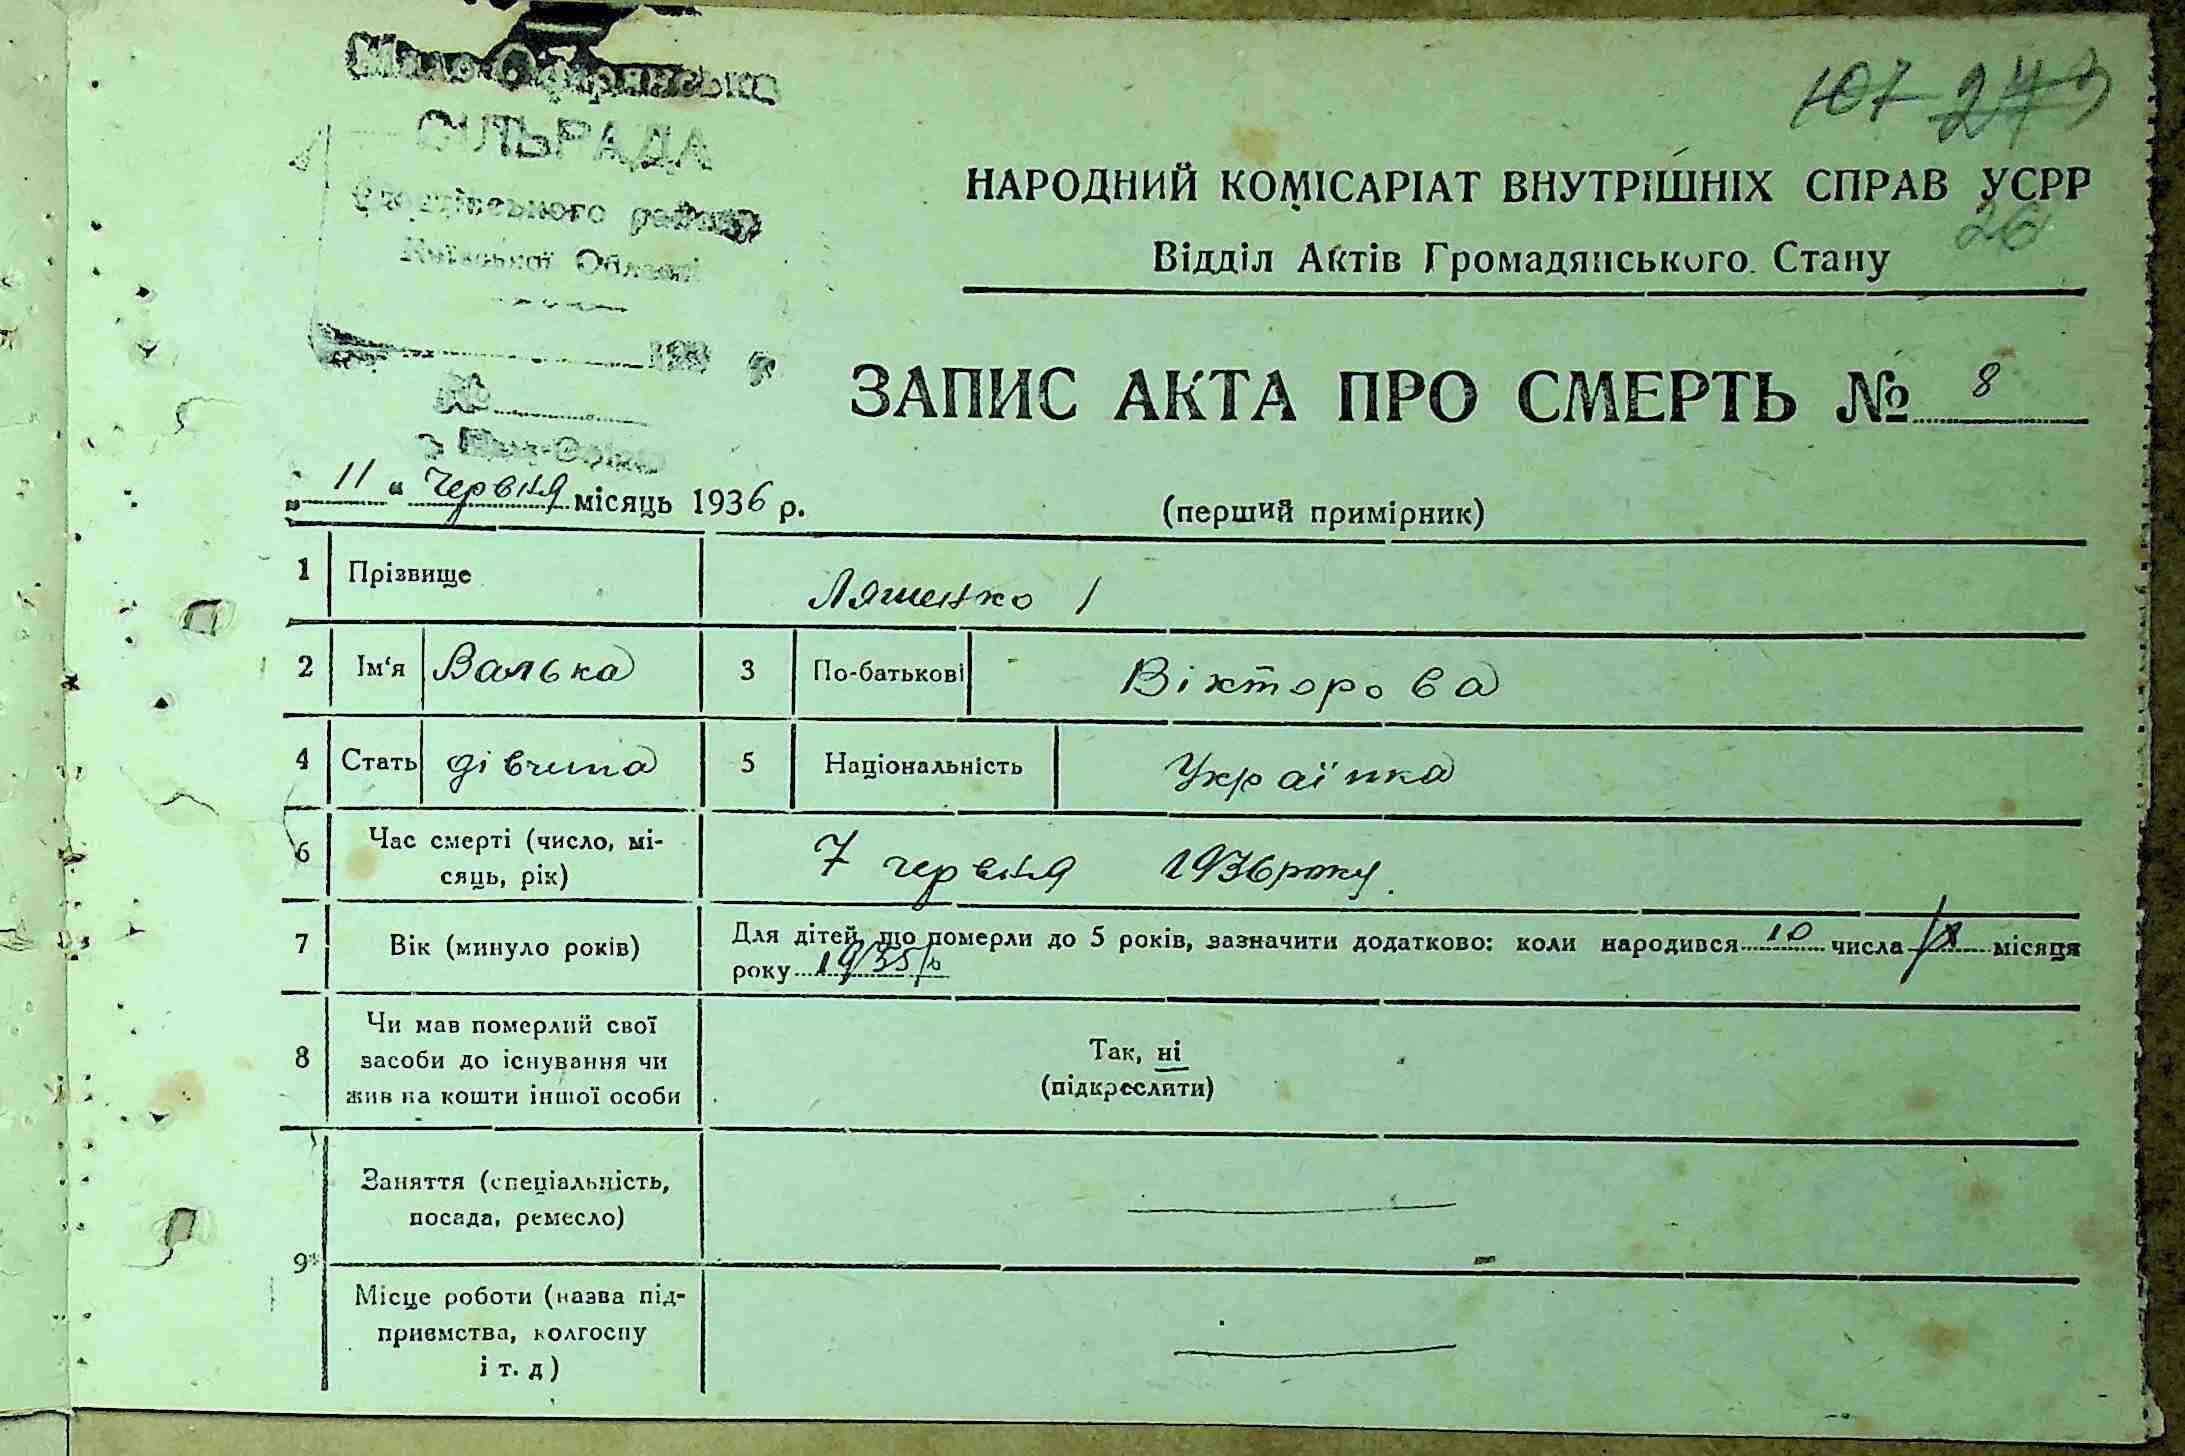 СІЛЬРАДА
району
Київської Області
107 247
НАРОДНИЙ КОМІСАРІАТ ВНУТРІШНІХ СПРАВ УСРР
26
Відділ Актів Громадянського Стану
193 р.
№
ЗАПИС АКТА ПРО СМЕРТЬ № 8
„ 11 “ Червня місяць 1936 р.
(перший примірник)
1 Прізвище Ляшенко
2 Ім‘я Валька 3 По-батькові Вікторова
4 Стать дівчина 5 Національність Українка
6 Час смерті (число, мі-
сяць, рік) 7 червня 1936 року.
7 Вік (минуло років) Для дітей, що померли до 5 років, зазначити додатково: коли народився 10 числа місяця
року 1935 р
8 Чи мав померлий свої
засоби до існування чи
жив на кошти іншої особи
Так, ні
(підкреслити)
9 Заняття (спеціальність,
посада, ремесло)
Місце роботи (назва під-
приємства, колгоспу
і т. д)